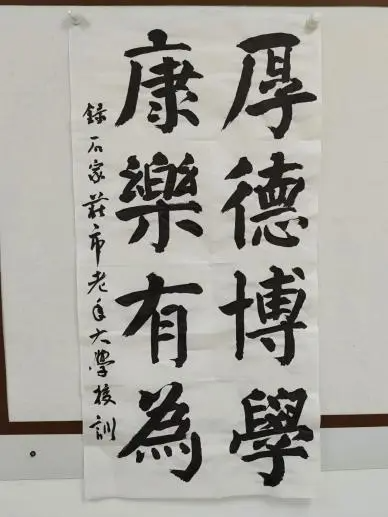 厚德博學
康樂有為
録石家莊市老年大學校訓